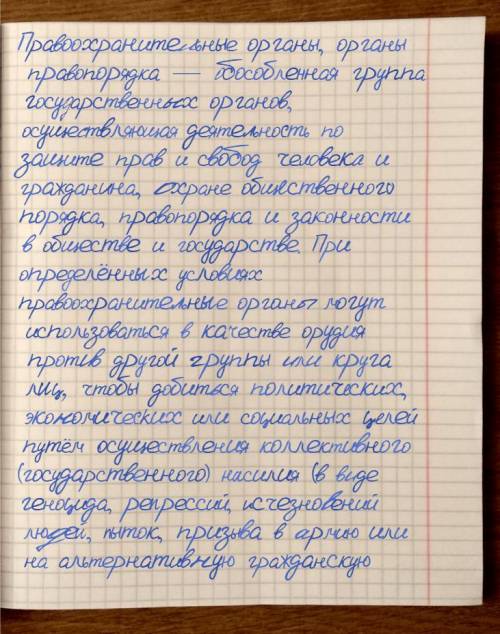 Правоохранительные органы, органы
правопорядка — обособленная группа
государственных органов,
осуществляющая деятельность по
защите прав и свобод человека и
гражданина, охране общественного
порядка, правопорядка и законности
в обществе и государстве. При
определённых условиях
правоохранительные органы могут
использоваться в качестве орудия
против другой группы или круга
лиц, чтобы добиться политических,
экономических или социальных целей
путём осуществления коллективного
(государственного) насилия (в виде
геноцида, репрессий, исчезновений
людей, пыток, призыва в армию или
на альтернативную гражданскую